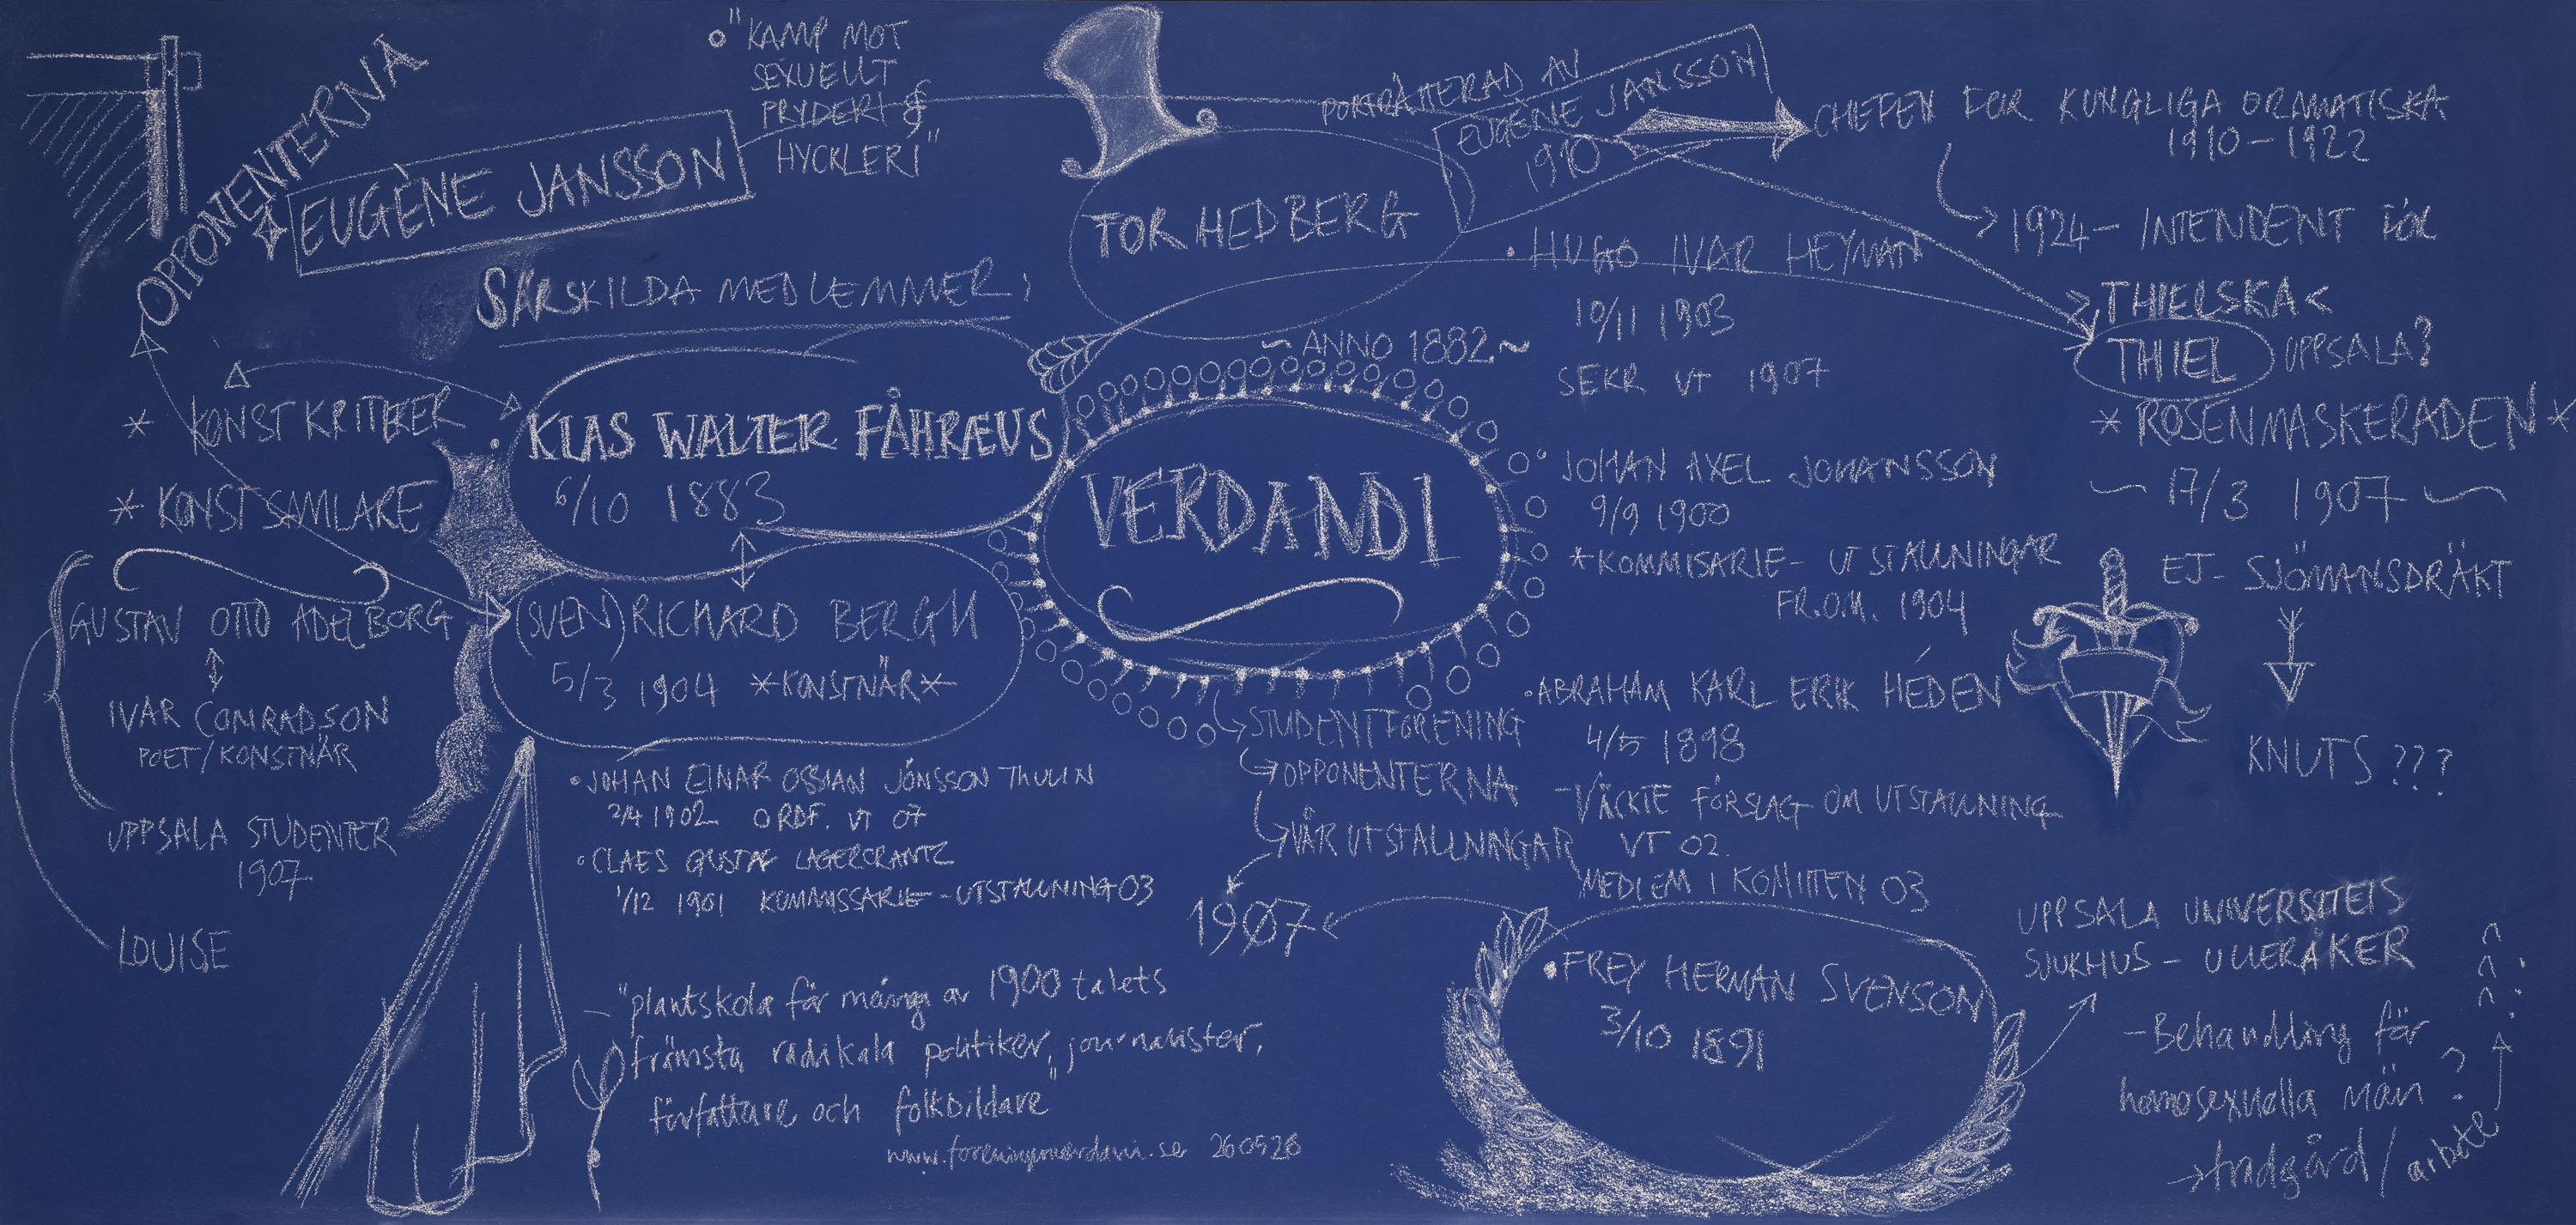 OPPONENTERNA
EUGÈNE JANSSON
"KAMP MOT
SEXUELLT
PRYDERI &
HYCKLERI"
SÄRSKILDA MEDLEMMER;
* KONSTKRITIKER
* KONSTSAMLARE
KLAS WALTER FÅHRÆUS
6/10 1883
(SVEN) RICHARD BERGH
5/3 1904 *KONSTNÄR*
GUSTAV OTTO ADELBORG
IVAR CONRADSON
POET/KONSTNÄR
UPPSALA STUDENTER
1907
LOUISE
• JOHAN EINAR OSSIAN JÖNSSON THULIN
2/4 1902 ORDF. VT 07
• CLAES GUSTAF LAGERCRANTZ
1/12 1901 KOMMISSARIE - UTSTÄLLNING 03
- "plantskola för många av 1900 talets
främsta radikala politiker, journalister,
författare och folkbildare"
260526
TOR HEDBERG
PORTRÄTTERAD AV
EUGÈNE JANSSON
1910
~ ANNO 1882 ~
VERDANDI
STUDENTFÖRENING
OPPONENTERNA
VÅRUTSTÄLLNINGAR
1907
CHEFEN FÖR KUNGLIGA DRAMATISKA
1910-1922
1924- INTENDENT FÖR
THIELSKA <
THIEL UPPSALA?
* ROSENMASKERADEN *
~ 17/3 1907 ~
EJ - SJÖMANSDRÄKT
KNUTS ???
• HUGO IVAR HEYMAN
10/11 1903
SEKR VT 1907
• JOHAN AXEL JOHANSSON
9/9 1900
*KOMMISARIE - UTSTÄLLNINGAR
FR.O.M. 1904
• ABRAHAM KARL ERIK HÉDEN
4/5 1898
- VÄCKTE FÖRSLAG OM UTSTÄLLNING
VT 02.
MEDLEM I KOMITTEN 03
• FREY HERMAN SVENSON
3/10 1891
UPPSALA UNIVERSITETS
SJUKHUS - ULLERÅKER
- Behandling för
homosexuella män ?
→ trädgård / arbete